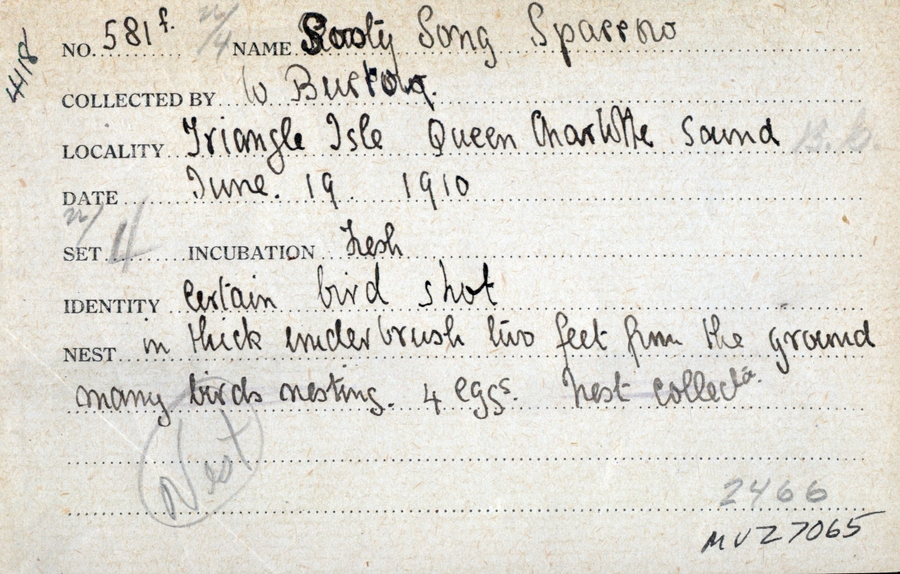 4418
NO. 581 f. n/4 NAME Sooty Song Sparrow
COLLECTED BY W Burton.
LOCALITY Triangle Isle Queen Charlotte Sound B.C.
DATE June. 19. 1910
n/
SET 4 INCUBATION Fresh
IDENTITY Certain bird shot
NEST in thick underbrush two feet from the ground
many birds nesting. 4 eggs. Nest collectd.
Nest
2466
MVZ 7065